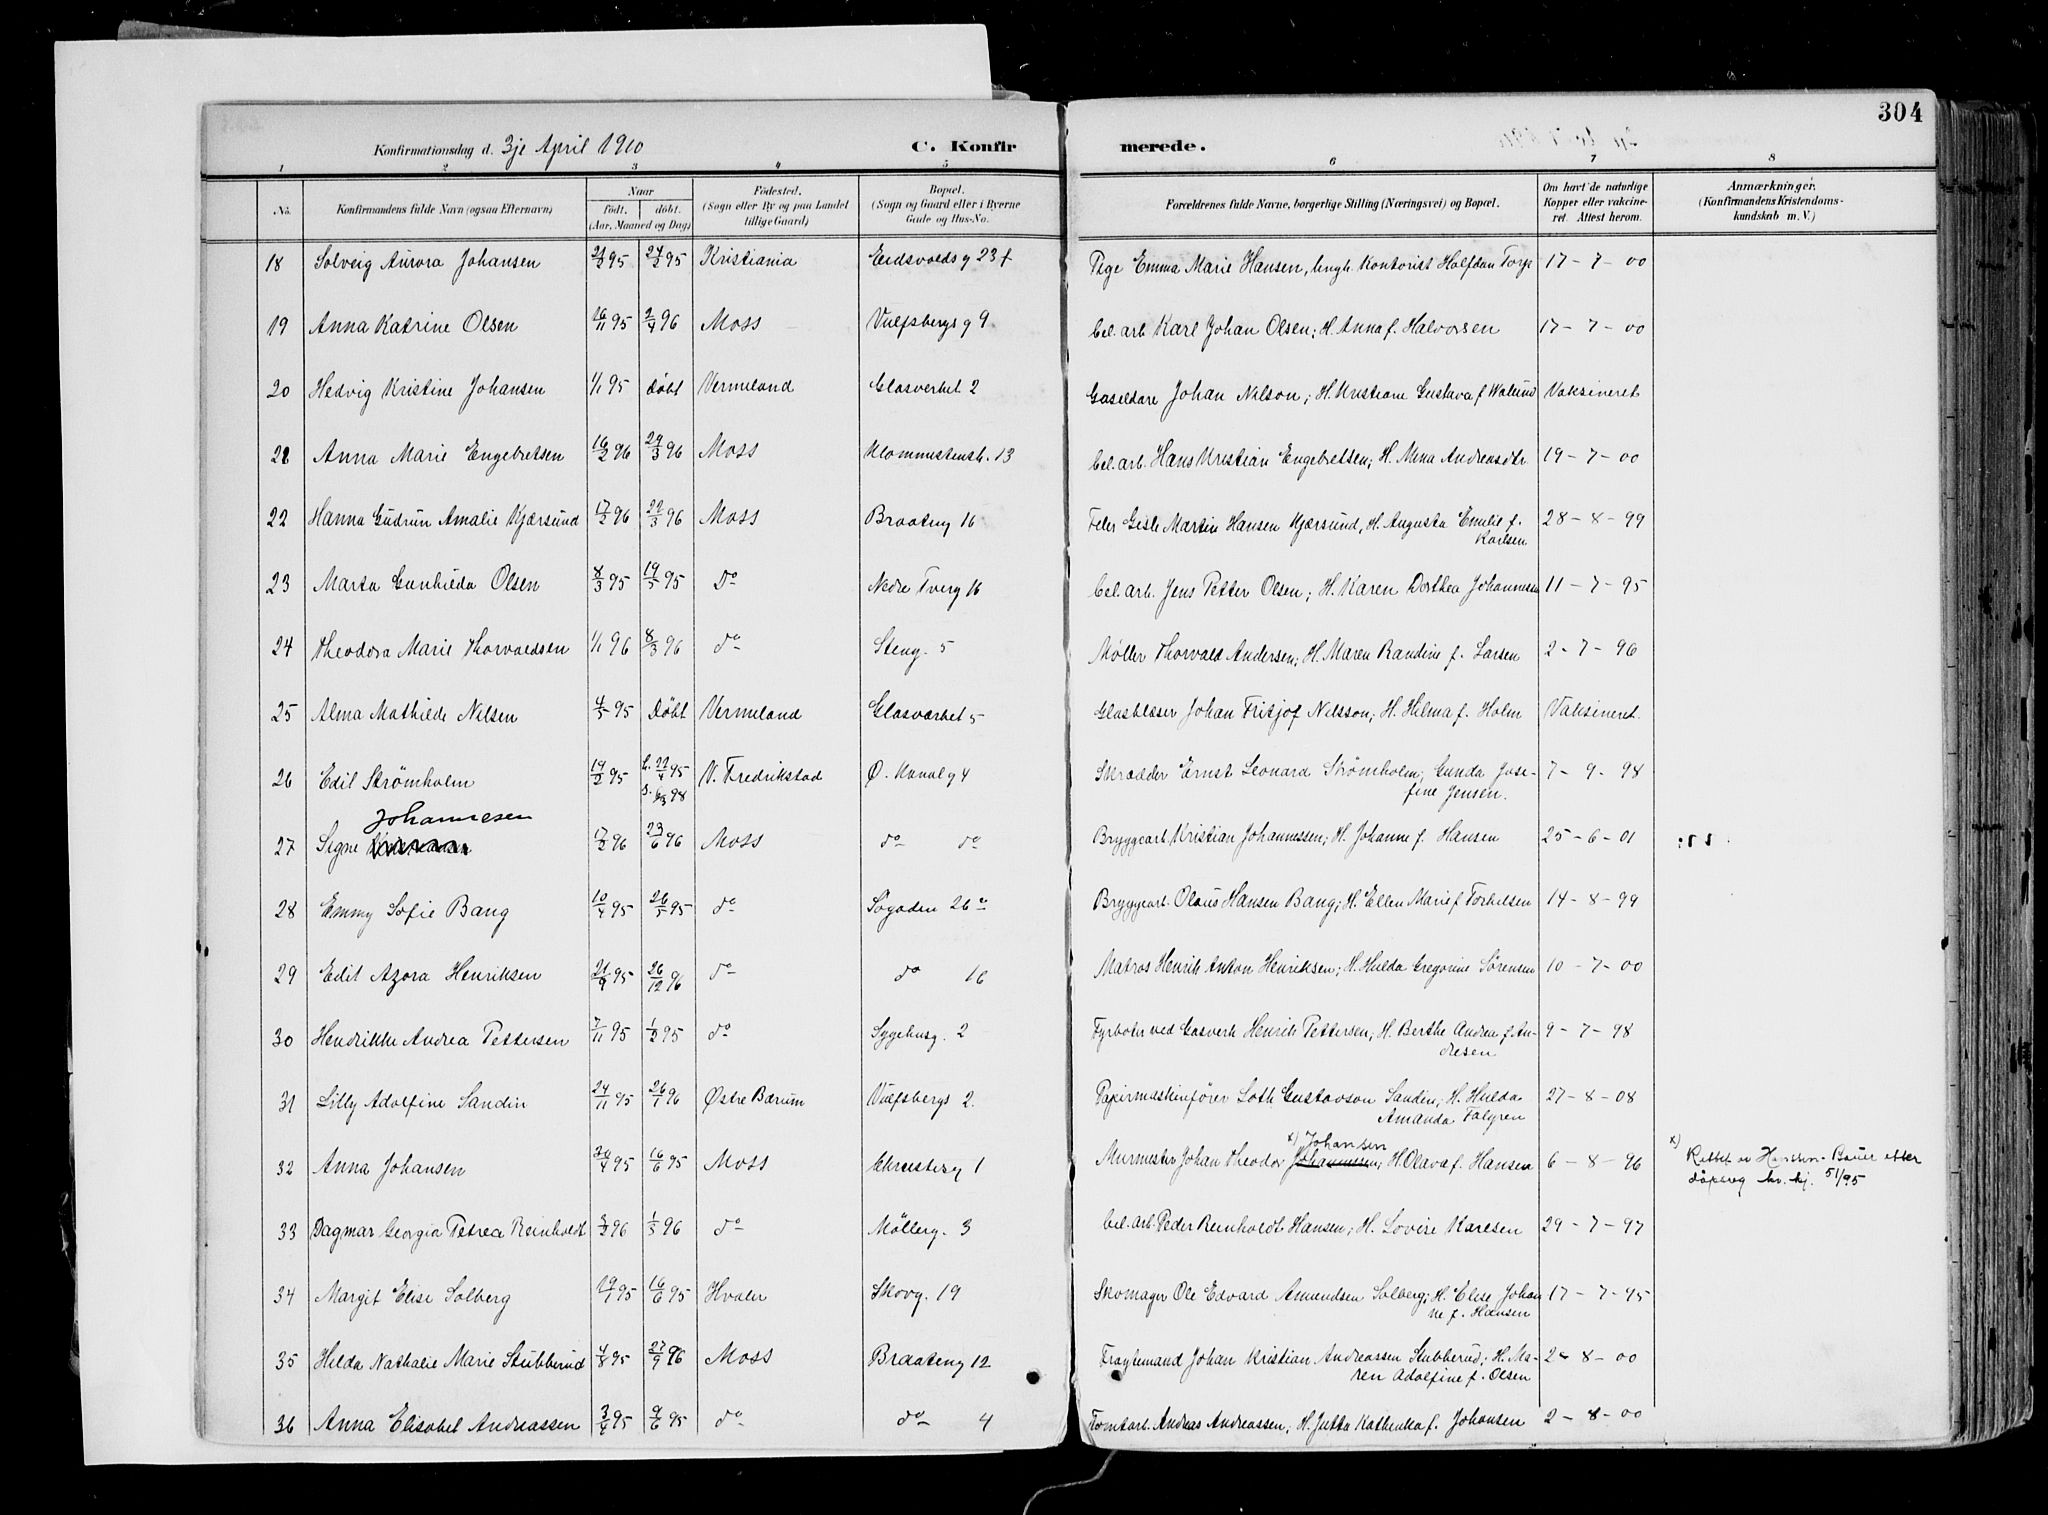 304
Konfirmationsdag d. 3je April 1910 C. Konfirmerede.
1 2 3 4 5 6 7 8
No. Konfirmandens fulde Navn (ogsaa Efternavn) Naar født. døbt. (Aar, Maaned og Dag) Fødested. (Sogn eller By og paa Landet tillige Gaard) Bopæl. (Sogn og Gaard eller i Byerne Gade og Hus-No. Forældrenes fulde Navne, borgerlige Stilling (Næringsvei) og Bopæl. Om havt de naturlige Kopper eller vakcineret. Attest herom. Anmærkninger. (Konfirmandens Kristendomskundskab m. V.)
18 Solveig Aurora Johansen 95 24/2 95 Kristiania Eidsvolds g 23 Pige Emma Marie Hansen, Ungk. Kontorist Halfdan Torp 17-7-00
19 Anna Katrine Olsen 16/11 95 2/4 96 Moss Vulfsbergs g 9 Cel. arb Karl Johan Olsen; H. Anna f. Halvorsen 17-7-00
20 Hedvig Kristine Johansen 1/1 95 Døbt Vermeland Glasverket 2 Johan Nilson; H. Kristiane Gustava f Vaksineret
21 Anna Marie Engebretsen 16/2 96 29/3 96 Moss 13 Cel. arb. Hans Kristian Engebretsen; H. Mina Andreasdtr. 19-7-00
22 Hanna Gudrun Amalie Kjærsund 17/2 96 22/3 96 Moss Braateng 16 Gisle Martin Hansen Kjærsund, H. Augusta Emilie f.
Karlsen 28-8-99
23 Marta Gunhilda Olsen 8/3 95 19/5 95 Do Nedre Tverg 16 Cel. arb. Jens Petter Olsen; H. Karen Dorthea Johannesen 11-7-95
24 Theodora Marie Thorvaldsen 1/1 96 8/3 96 do Steng. 5 Møller Thorvald Andersen; H. Maren Randine f. Larsen 2-7-96
25 Alma Mathilde Nilsen 4/5 95 Døbt Vermeland Glasværket 5 Glasblæser Johan Fritjof Nilsson, H. Hilma f. Holm Vaksineret.
26 Edil Strømholm 19/2 95 22/4 95 V. Fredrikstad Ø. Kanalg 4 Skrædder Ernst Leonard Strømholm, Gunda Jose-
98 fine Jensen. 7-9-98
Johannesen
27 Signe 17/2 96 23/6 96 Moss do do Bryggearb Kristian Johannessen; H. Johanne f. Hansen 25-6-01
28 Emmy Sofie Bang 10/4 95 26/5 95 do Søgaden 26 a Bryggearb. Olaus Hansen Bang; H. Ellen Marie f Torkelsen 14-8-99
29 Edit Azora Henriksen 21/9 95 26/12 96 do do 16 Matros Henrik Anton Henriksen; H. Hulda Gregorine Sørensen 10-7-00
30 Hendrikke Andrea Pettersen 7/11 95 1/2 95 do Sygehusg. 2 Fyrbøter ved Gasverk Henrik Pettersen; H. Berthe Andrea f. An-
dresen 9-7-98
31 Lilly Adolfine Sandin 24/11 95 26/1 96 Østre Bærum Vulfsbergs 2. Papirmaskinfører Loth Gustavson Sandin; H. Hulda
Amanda Falgren 27-8-08
x) Johansen
32 Anna Johansen 30/4 95 16/6 95 Moss Chrystierg 1 Murmester Johan Theodor Johannesen; H. Olava f. Hansen 6-8-96 x) Rettet
51/95
33 Dagmar Georgia Petrea Reinholdt 3/2 96 1/3 96 do Møllerg. 3 Cel. arb. Peder Reinholdt Hansen; H. Lovise Karlsen 29-7-97
34 Margit Elise Solberg 19/1 95 16/6 95 Hvaler Skovg. 19 Skomager Ole Edvard Amundsen Solberg; H. Elise Johan
ne f. Hansen 17-7-95
35 Hilda Nathalie Marie Stubberud 4/8 95 27/9 96 Moss Braateng 12 Johan Kristian Andreassen Stubberud; H. Ma-
ren Adolfine f. Olsen 2-8-00
36 Anna Elisabet Andreassen 3/4 95 9/6 95 do do 4 Tomtarb. Andreas Andreassen; H. Jutta Kathinka f. Johansen 2-8-00